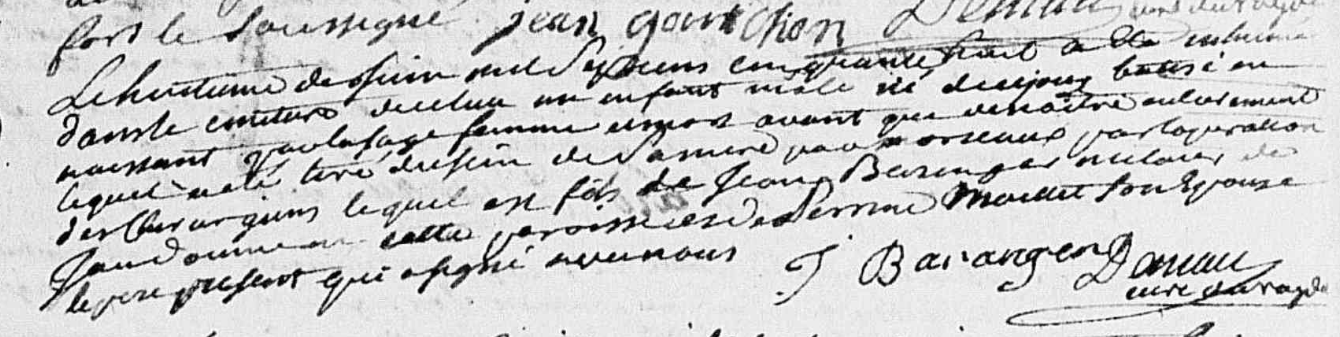 fort le soussigné jean gautchon
Le huitieme de juin mil sept cens cinquante huit a été inhumé
dans le cimetiere de ce lieu un enfant mâle né de ce jour batisé en
naissant par la sage femme et mort avant que de naître entierement
lequel a eté tiré du sein de sa mere par morseaux par l'operation
des Chirurgiens lequel est fils de Jean Baranger de
cette paroisse et de Perrine Mallet son Epouse
le pere present qui a signé avec nous
J Baranger Daniau
curé du